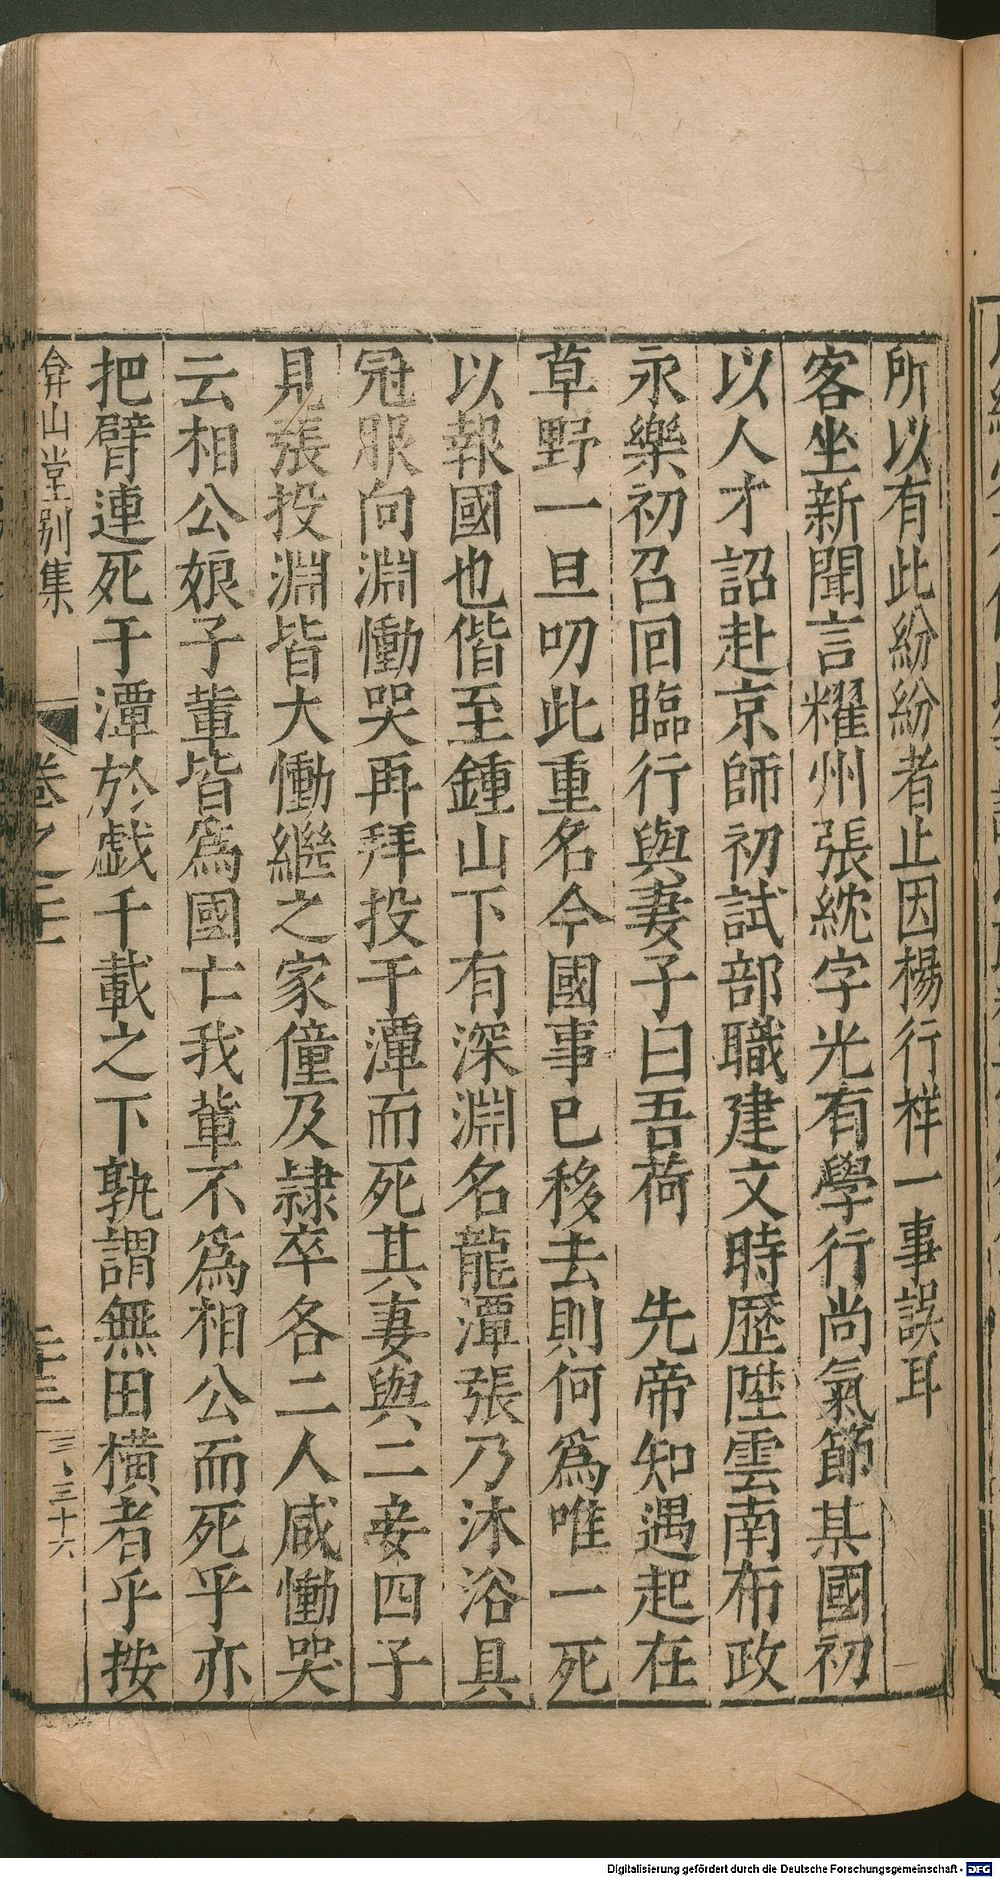 所以有此紛紛者止因楊行祥一事誤耳
客坐新聞言耀州張紞字光有學行尚氣節其國初
以人才詔赴京師初試部職建文時歷陞雲南布政
永樂初召回臨行與妻子曰吾荷　先帝知遇起在
草野一旦叨此重名今國事已移去則何爲唯一死
以報國也偕至鍾山下有深淵名龍潭張乃沐浴具
冠服向淵慟哭再拜投于潭而死其妻與二妾四子
見張投淵皆大慟繼之家僮及隷卒各二人咸慟哭
云相公娘子輩皆爲國亡我輩不爲相公而死乎亦
把臂連死于潭於戯千載之下孰謂無田橫者乎按
弇山堂别集
卷之二十
二十三
三八三十六
Digitalisierung gefördert durch die Deutsche Forschungsgemeinschaft - DFG